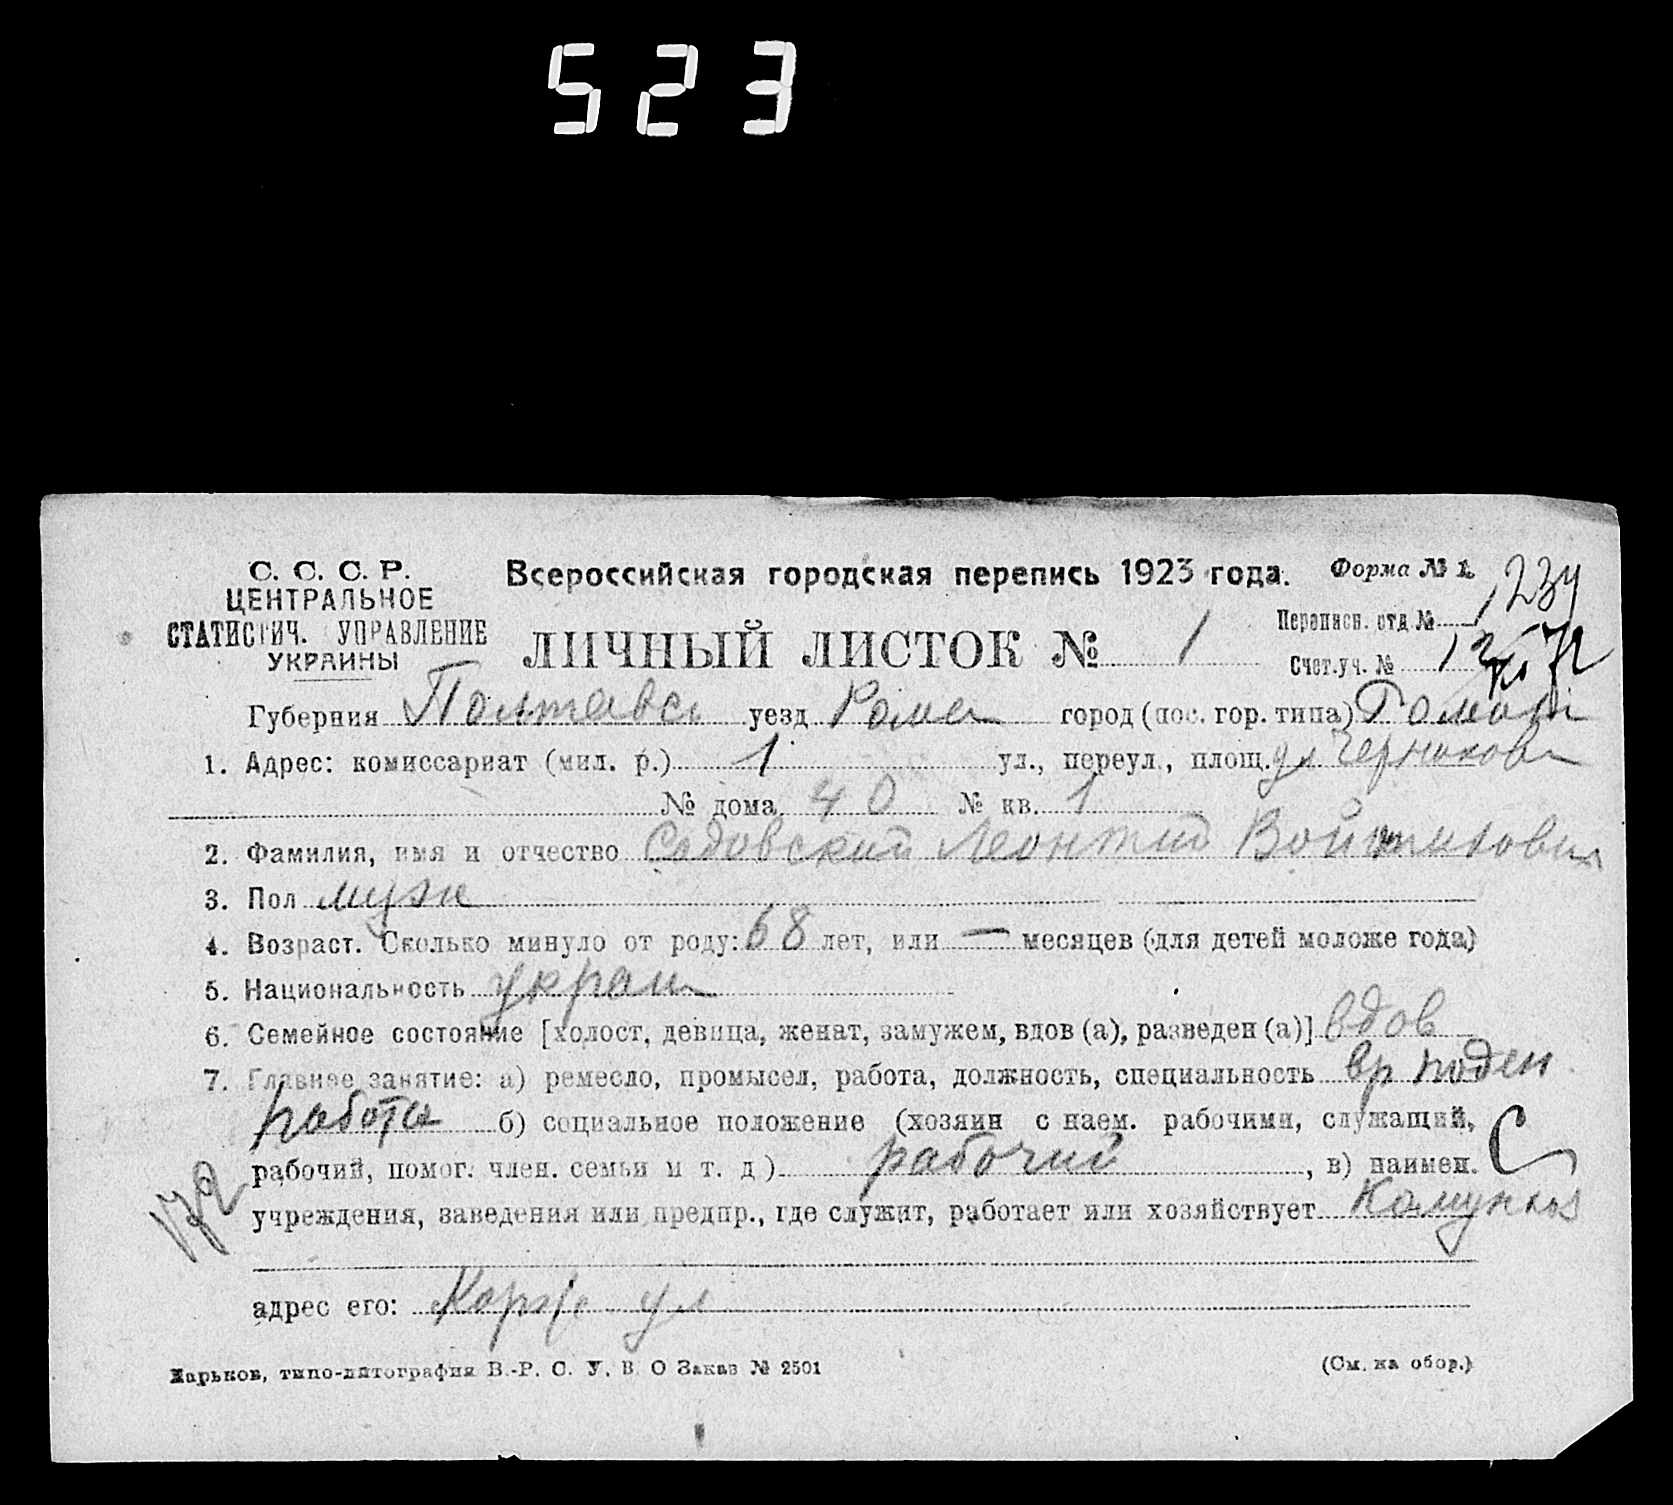 523
С. С. С. Р.
ЦЕНТРАЛЬНОЕ
СТАТИСТИЧ. УПРАВЛЕНИЕ
УКРАИНЫ
Всероссийская городская перепись 1923 года.
Форма № 1.
ЛИЧНЫЙ ЛИСТОК № 1
Переписн. отд №
Счет.уч. №
Губерния Полтавск уезд Ромен город (пос. гор. типа) Ромны
1. Адрес: комиссариат (мил. р.) 1 ул., переул., площ. ул
№ дома 40 № кв. 1
2. Фамилия, имя и отчество Садовский Леонтий
3. Пол муж
4. Возраст. Сколько минуло от роду: 68 лет, или — месяцев (для детей моложе года)
5. Национальность украин
6. Семейное состояние [холост, девица, женат, замужем, вдов (а), разведен (а)] вдов
7. Главное занятие: а) ремесло, промысел, работа, должность, специальность вр поден
работа б) социальное положение (хозяин с наем. рабочими, служащий,
рабочий, помог. член. семьи и т. д.) рабочий, в) наимен.
учреждения, заведения или предпр., где служит, работает или хозяйствует Комунхоз
172
адрес его: ул
Харьков, типо-литография В.-Р. С. У. В. О Заказ № 2501
(См. на обор.)